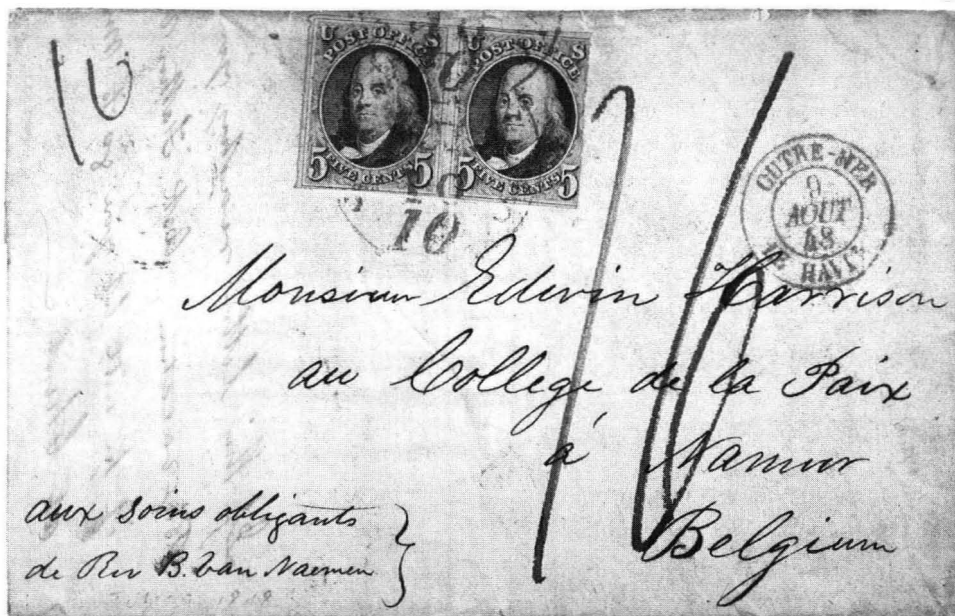 10
U S
POST OFFICE
5 FIVE CENTS 5
U S
POST OFFICE
5 FIVE CENTS 5
10
OUTRE-MER
9
AOUT
48
LE HAVRE
16
Monsieur Edwin Harrison
au College de la Paix
à Namur
Belgium
aux soins obligants
de Rev B. Van Naemen